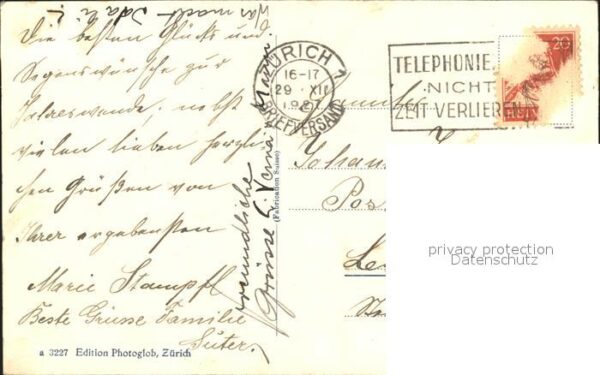 War macht Idali?
Die besten Glücks und
Segenswünsche zur
Jahreswende, nebst
vielen lieben herzli-
chen Grüßen von
Ihrer ergebensten
Marie Stampfl
Beste Grüsse Familie
Suter.
freundliche
Grüsse E. Verna
a 3227 Edition Photoglob, Zürich
(Fabrication Suisse)
ZÜRICH 1
16-17
29. XII
1927
BRIEFVERSAND
TELEPHONIE
NICHT
ZEIT VERLIEREN
20
Johan
Pos
Le
privacy protection
Datenschutz